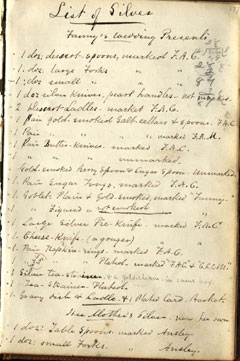 List of Silver
Fanny's Wedding Presents
1 doz: dessert-spoons, marked F.A.C.
1 doz: large Forks " "
1 doz: small " " "
1 doz silver knives, pearl handles - not marked
2 dessert-Ladles - marked F.A.C.
1 Pair gold-smoked Salt cellars & spoons. F.A.C.
1 Pair " " " marked F.A.M.
1 Pair Butter-Knives. marked F.A.C.
" " unmarked.
Gold-smoked Berry Spoon & Sugar Spoon - Unmarked
1 Pair Sugar Tongs, marked F.A.C.
1 Goblet. Plain & Gold-smoked, marked "Fanny."
1 " Figured & unsmoked
1 Large Silver Pie-Knife - marked F.A.C.
1 Cheese-Knife
1 Pair Napkin-rings, marked F.A.C.
1 Pair " Plated - marked F.A.C & "
1 Silver tea-
1 Tea-Strainer - Plated.
1 Gravy dish & Ladle & 1 Plated Card-Basket.
Mother's Silver - her own
1 doz: Table Spoons, marked Ansley
1 doz: small Forks. " Ansley.